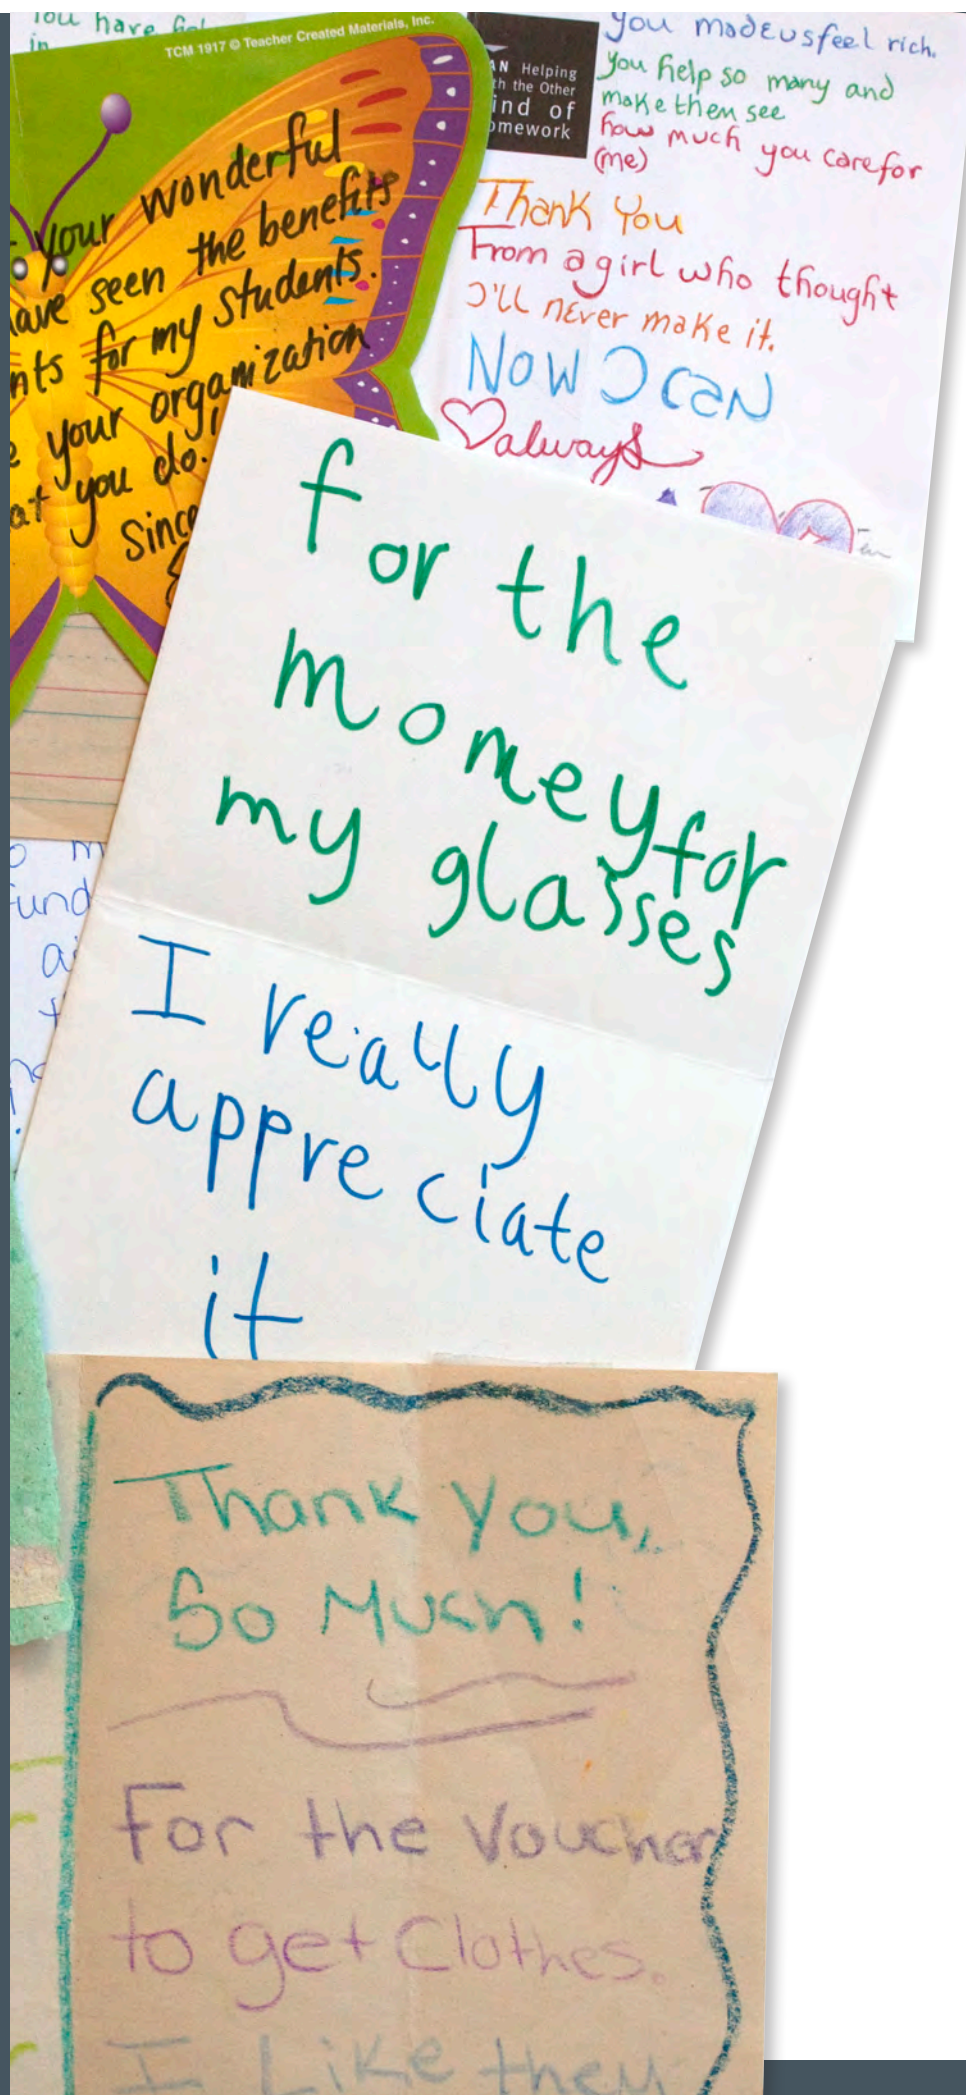 You have
in
TCM 1917 © Teacher Created Materials, Inc.
your wonderful
have seen the benefits
nts for my students.
your organization
at you do.
Since
AN Helping
th the Other
ind of
omework
you made us feel rich.
you help so many and
make them see
how much you care for
(me)
Thank You
From a girl who thought
I'll never make it.
Now I can
always
for the
money for
my glasses
I really
appreciate
it
fund
Thank you,
So Much!
For the Voucher
to get Clothes.
I Like they